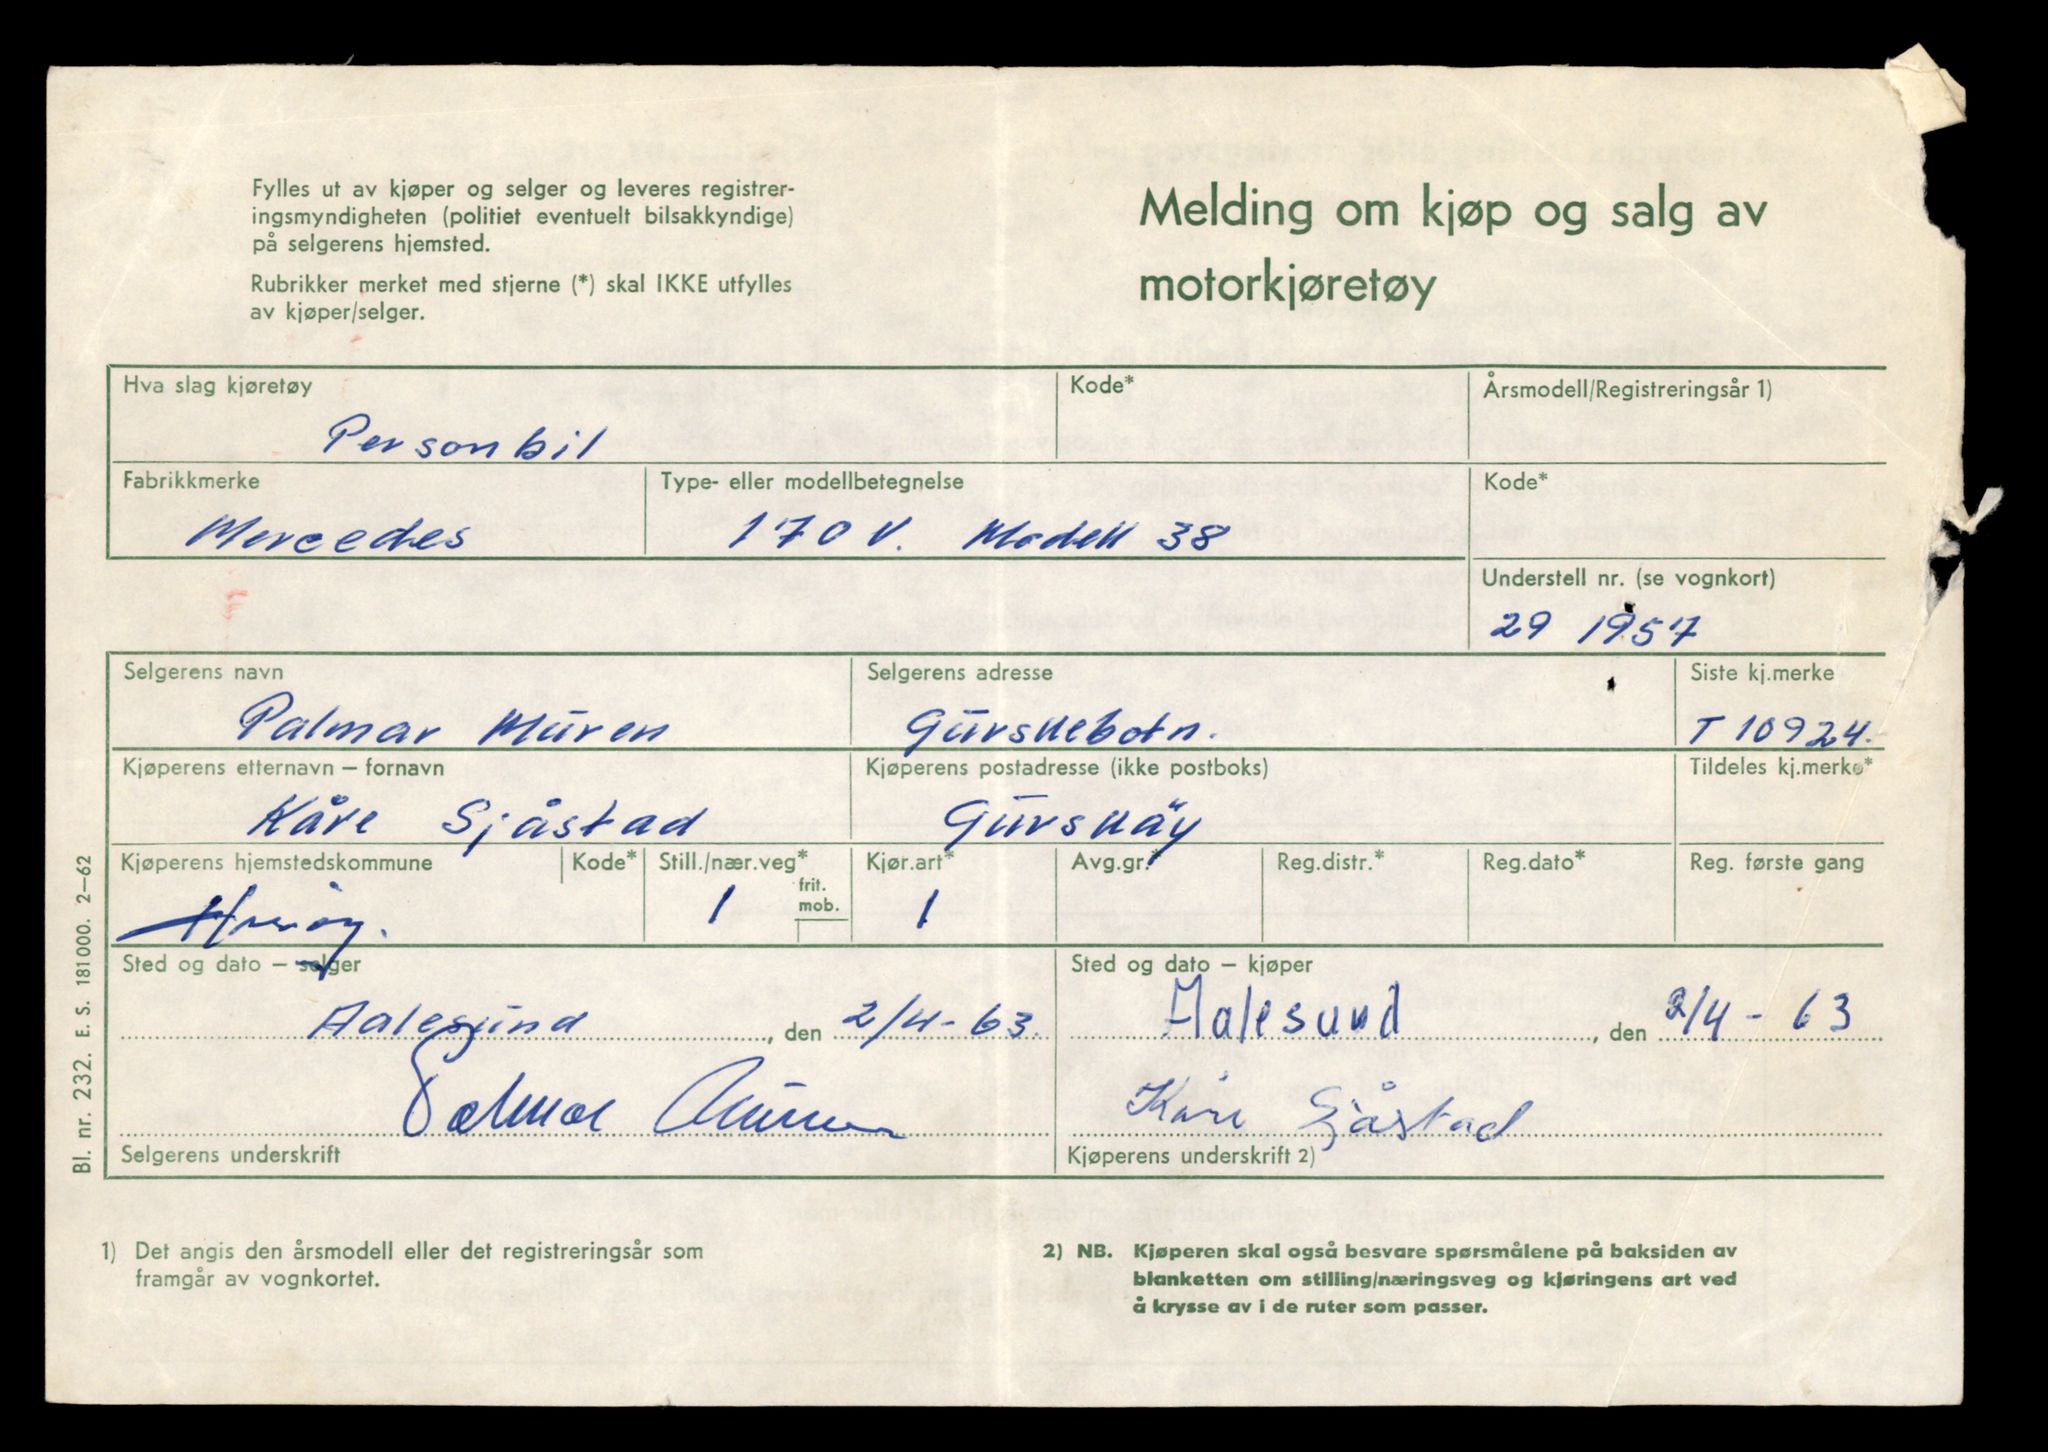 Fylles ut av kjøper og selger og leveres registrer-
ingsmyndigheten (politiet eventuelt bilsakkyndige)
på selgerens hjemsted.
Rubrikker merket med stjerne (*) skal IKKE utfylles
av kjøper/selger.
Melding om kjøp og salg av
motorkjøretøy
Hva slag kjøretøy
Personbil
Kode*
Årsmodell/Registreringsår 1)
Fabrikkmerke
Mercedes
Type- eller modellbetegnelse
170 V. Modell 38
Kode*
Understell nr. (se vognkort)
29 1957
Selgerens navn
Palmar Muren
Selgerens adresse
Gurskebotn.
Siste kj.merke
T 10924.
Kjøperens etternavn – fornavn
Kåre Sjåstad
Kjøperens postadresse (ikke postboks)
Gurskäy
Tildeles kj.merke*
Kjøperens hjemstedskommune
Kode*
Still./nær.veg*
1
frit.
mob.
Kjør.art*
1
Avg.gr.*
Reg.distr.*
Reg.dato*
Reg. første gang
Sted og dato – selger
Aalesund, den 2/4-63.
Sted og dato – kjøper
Aalesund, den 2/4-63
Palmar Muren
Selgerens underskrift
Kåre Sjåstad
Kjøperens underskrift 2)
Bl. nr. 232. E. S. 181000. 2–62
1) Det angis den årsmodell eller det registreringsår som
framgår av vognkortet.
2) NB. Kjøperen skal også besvare spørsmålene på baksiden av
blanketten om stilling/næringsveg og kjøringens art ved
å krysse av i de ruter som passer.